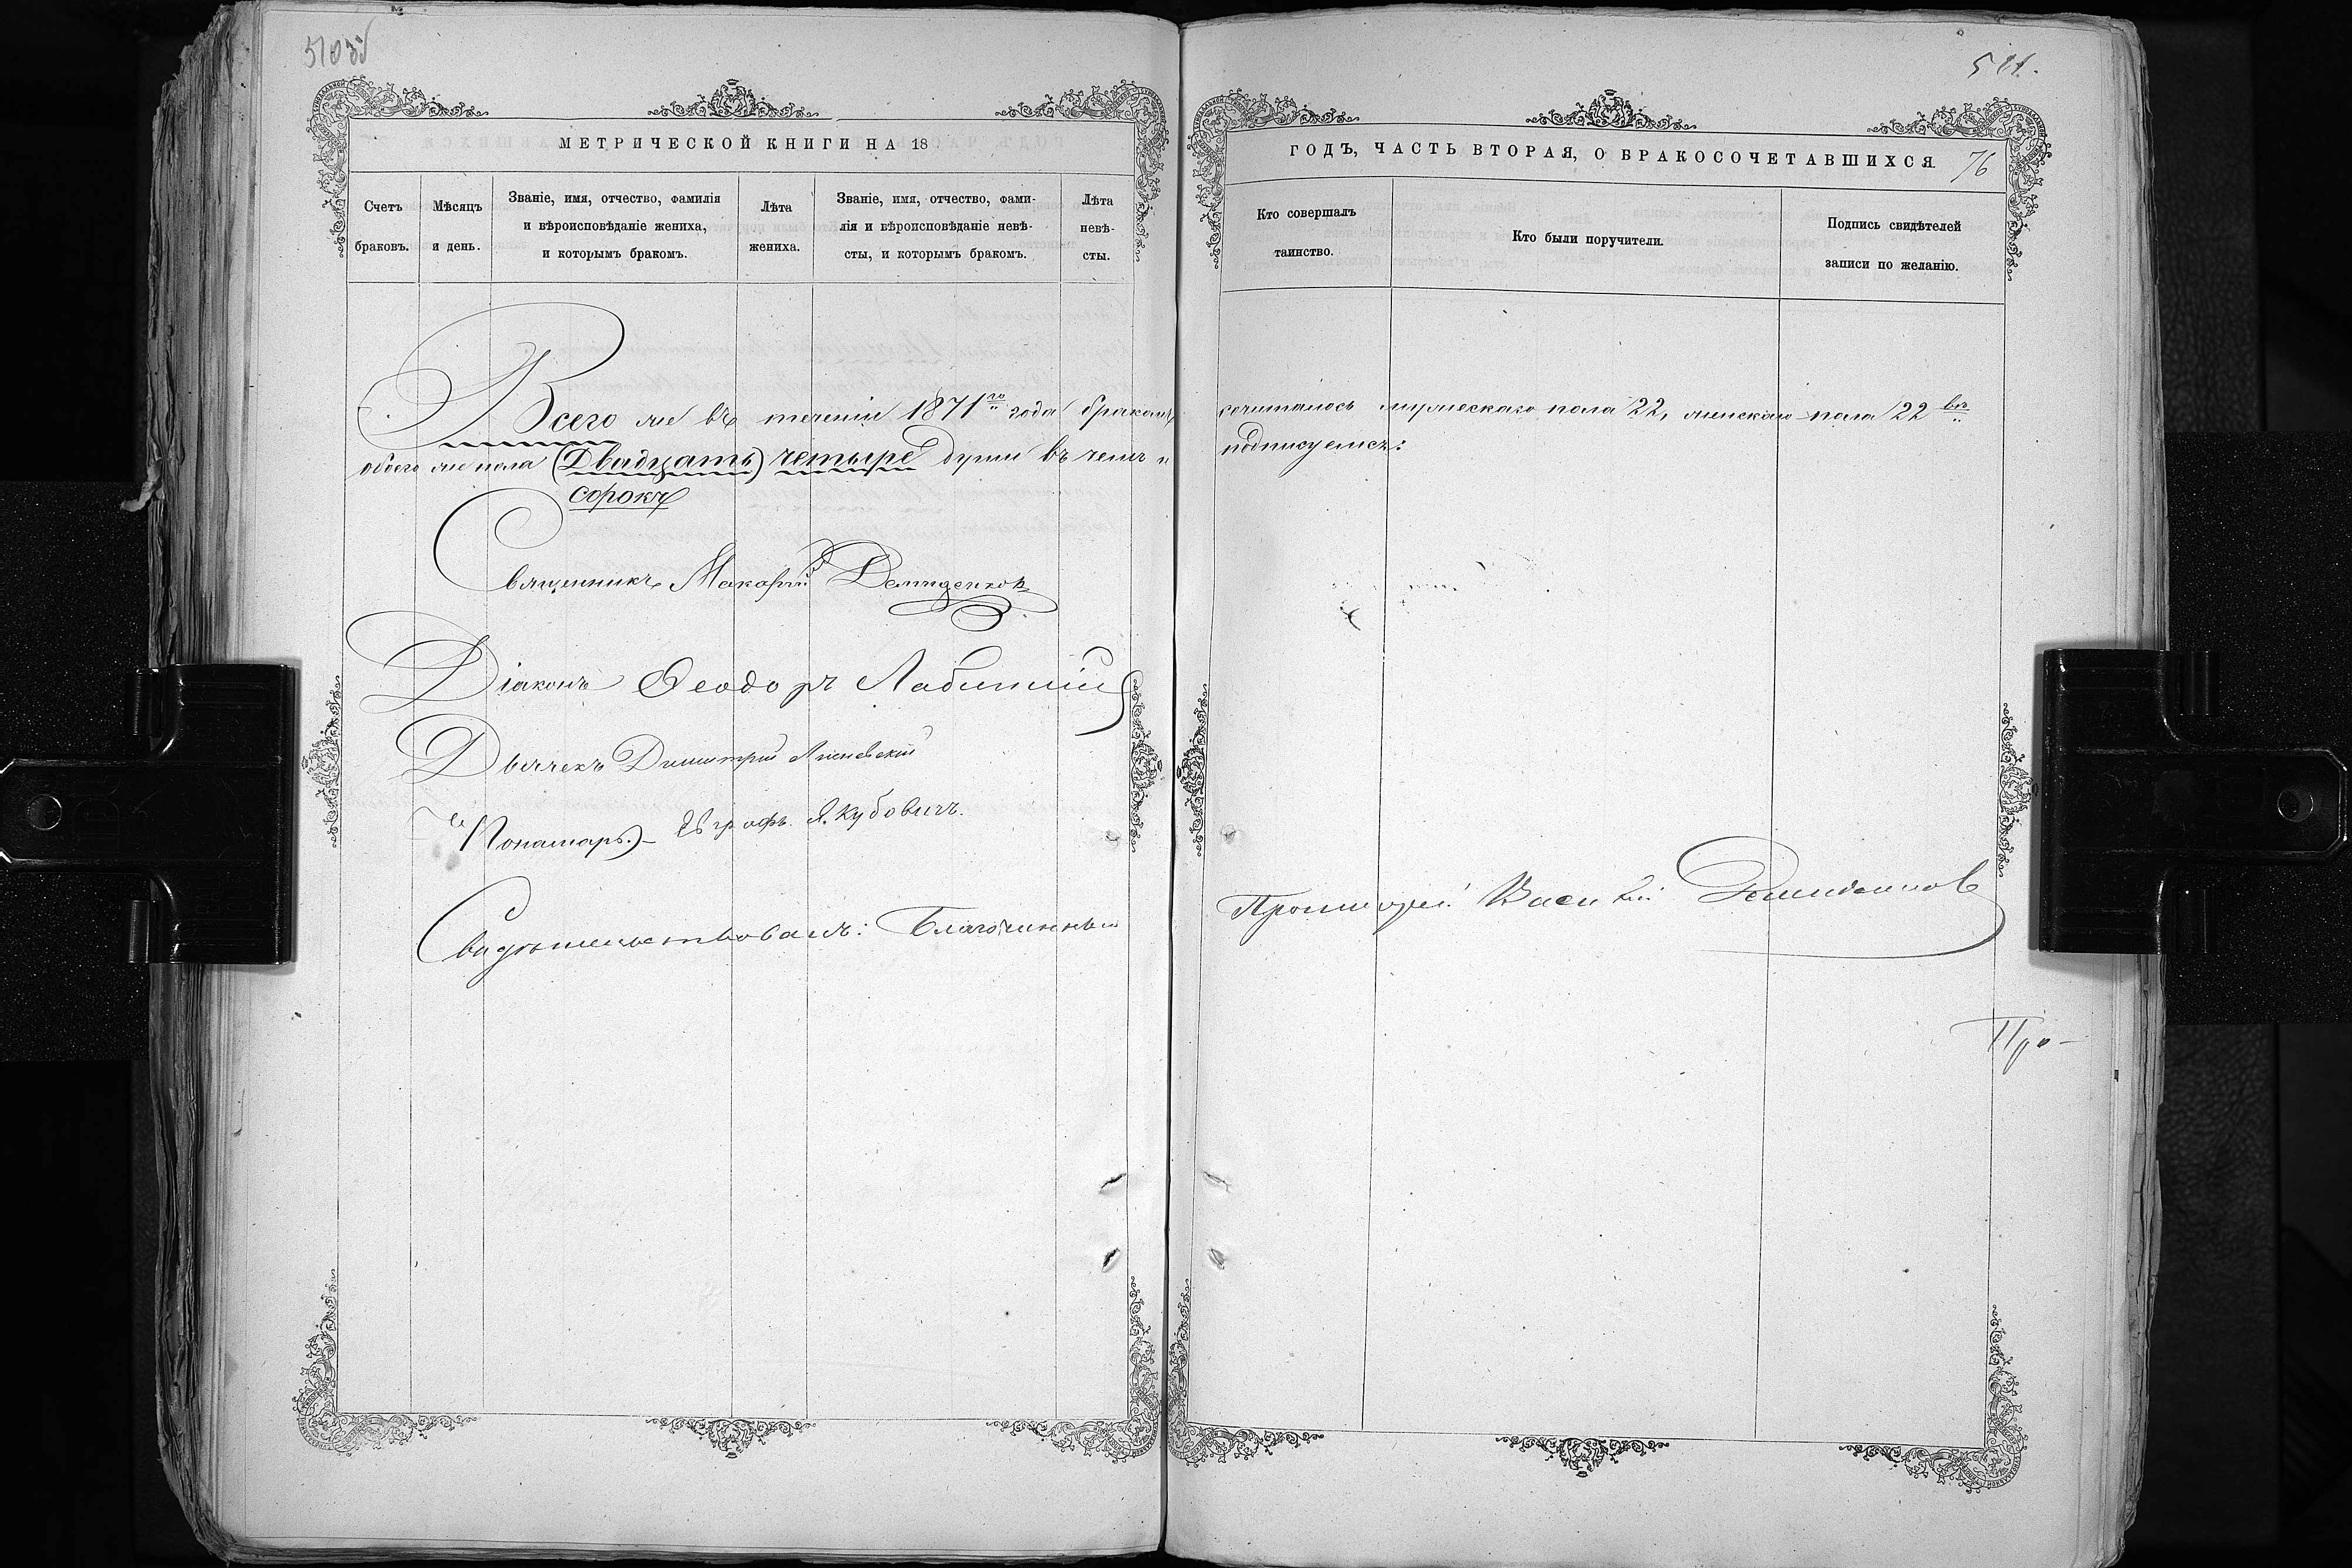 510 об
МЕТРИЧЕСКОЙ КНИГИ НА 18
Счетъ браковъ.
Мѣсяцъ и день.
Званіе, имя, отчество, фамилія и вѣроисповѣданіе жениха, и которымъ бракомъ.
Лѣта жениха.
Званіе, имя, отчество, фамилія и вѣроисповѣданіе невѣсты, и которымъ бракомъ.
Лѣта невѣсты.
Всего же въ теченіи 1871го года бракомъ
обоего же пола (Двадцать) четыре души въ чемъ и
сорокъ
Священникъ Макарій Демиденковъ
Діаконъ Ѳеодоръ
Дьячекъ Димитрій Лисневскій
Пономарь Евграфъ Якубовичъ.
Свидѣтельствовалъ: Благочинный
511.
ГОДЪ, ЧАСТЬ ВТОРАЯ, О БРАКОСОЧЕТАВШИХСЯ.
76
Кто совершалъ таинство.
Кто были поручители.
Подпись свидѣтелей записи по желанію.
сочиталось мужескаго пола 22, женскаго пола 22 въ
подписуемся:
Протоіерей Василій Демиденковъ
Про-